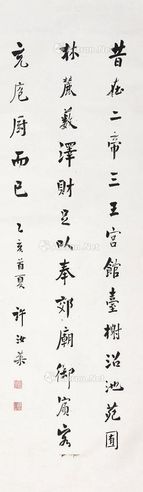 昔在二帝三王宫館臺榭沼池苑囿
林麓薮澤財足以奉郊廟御賓客
充庖厨而已
乙亥首夏 許汝棻